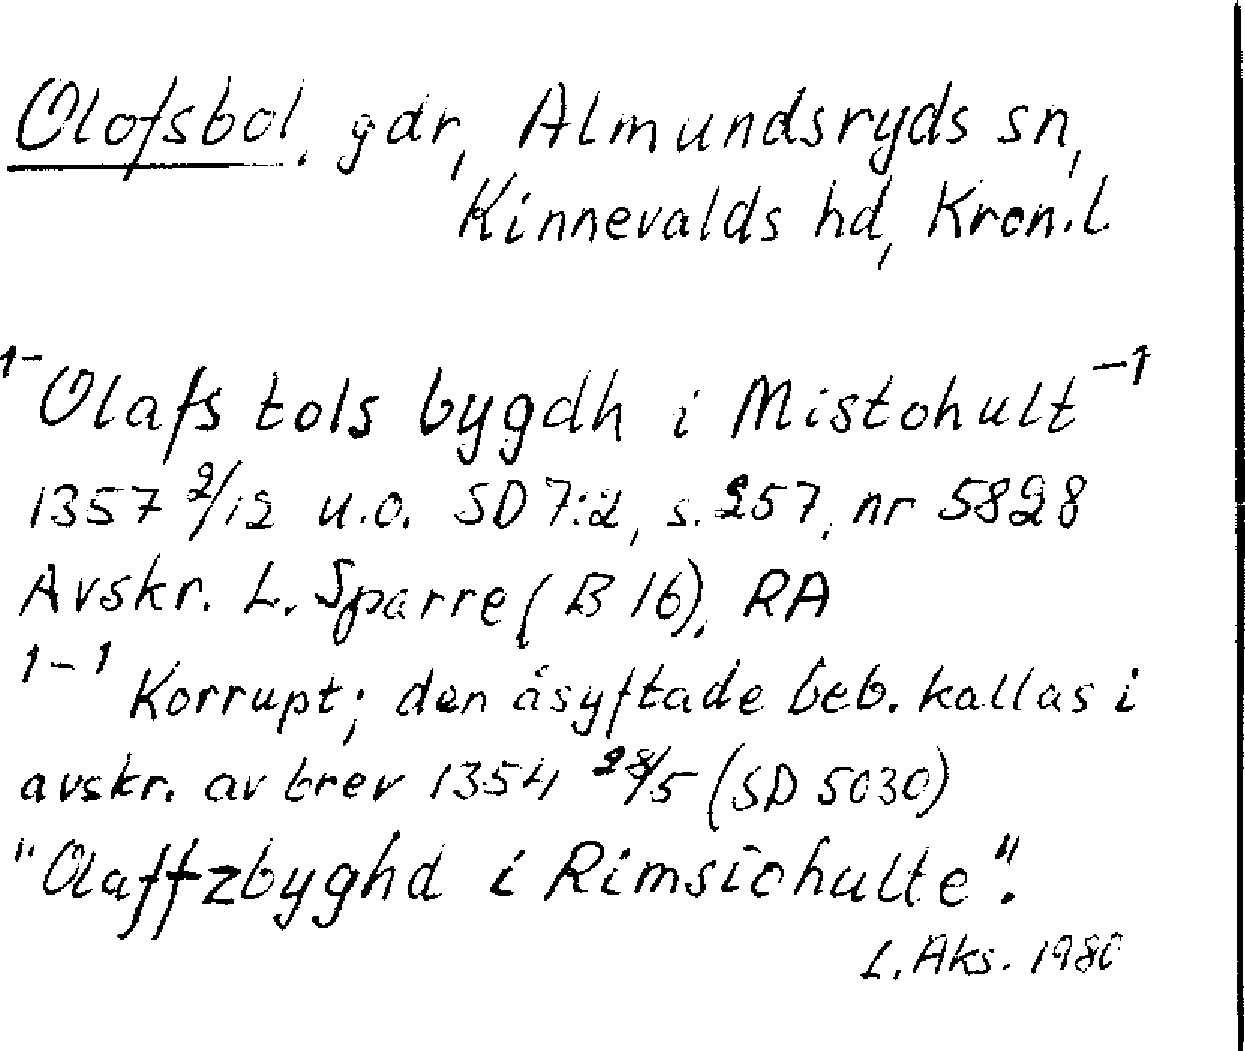 Olofsbol, gdr, Almundsryds sn,
Kinnevalds hd, Kron.l.
1-Olafs tols bygdh i Mistohult-1
1357 2/12 u.o. SD 7:2, s. 257, nr 5828
Avskr. L. Sparre (B 16), RA
1-1 Korrupt; den åsyftade beb. kallas i
avskr. av brev 1354 28/5 (SD 5030)
"Olaffzbyghd i Rimsiohulte".
L. Aks. 1980